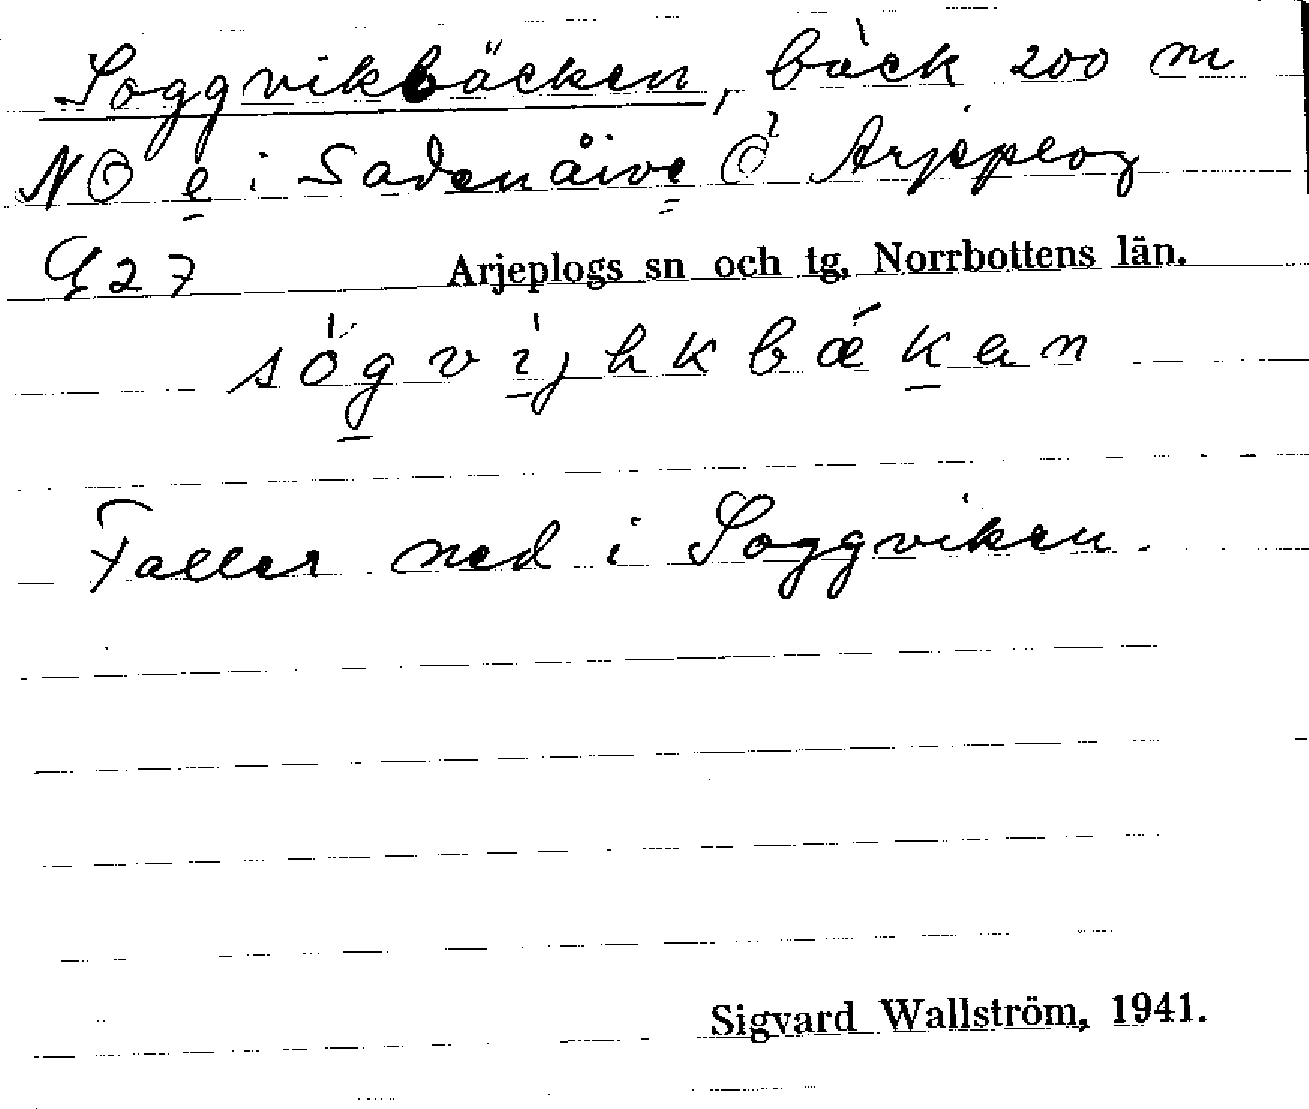 Soggvikbäcken, bäck 200 m
NO e i Sadenåive Ö Arjeplog
G27 Arjeplogs sn och tg, Norrbottens län.
sögvijhkbækan
Faller ned i Soggviken.
Sigvard Wallström, 1941.